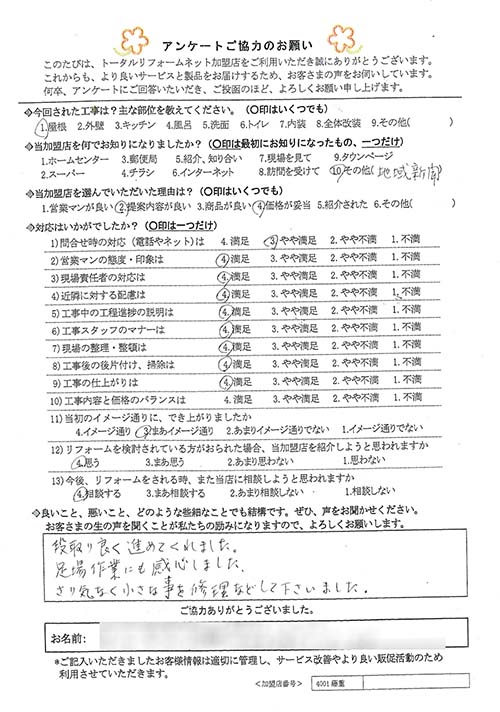 アンケートご協力のお願い
このたびは、トータルリフォームネット加盟店をご利用いただき誠にありがとうございます。
これからも、より良いサービスと製品をお届けするため、お客さまの声をお伺いしています。
何卒、アンケートにご回答いただき、ご投函のほど、よろしくお願い申し上げます。
❖今回された工事は？主な部位を教えてください。（○印はいくつでも）
1.屋根 2.外壁 3.キッチン 4.風呂 5.洗面 6.トイレ 7.内装 8.全体改装 9.その他( )
❖当加盟店を何でお知りになりましたか？（○印は最初にお知りになったもの、一つだけ）
1.ホームセンター 3.郵便局 5.紹介、知り合い 7.現場を見て 9.タウンページ
2.スーパー 4.チラシ 6.インターネット 8.訪問を受けて 10.その他(地域新聞)
❖当加盟店を選んでいただいた理由は？（○印はいくつでも）
1.営業マンが良い 2.提案内容が良い 3.商品が良い 4.価格が妥当 5.紹介された 6.その他( )
❖対応はいかがでしたか？（○印は一つだけ）
1)問合せ時の対応（電話やネット）は 4.満足 3.やや満足 2.やや不満 1.不満
2)営業マンの態度・印象は 4.満足 3.やや満足 2.やや不満 1.不満
3)現場責任者の対応は 4.満足 3.やや満足 2.やや不満 1.不満
4)近隣に対する配慮は 4.満足 3.やや満足 2.やや不満 1.不満
5)工事中の工程進捗の説明は 4.満足 3.やや満足 2.やや不満 1.不満
6)工事スタッフのマナーは 4.満足 3.やや満足 2.やや不満 1.不満
7)現場の整理・整頓は 4.満足 3.やや満足 2.やや不満 1.不満
8)工事後の後片付け、掃除は 4.満足 3.やや満足 2.やや不満 1.不満
9)工事の仕上がりは 4.満足 3.やや満足 2.やや不満 1.不満
10)工事内容と価格のバランスは 4.満足 3.やや満足 2.やや不満 1.不満
11)当初のイメージ通りに、でき上がりましたか
4.イメージ通り 3.まあイメージ通り 2.あまりイメージ通りでない 1.イメージ通りでない
12)リフォームを検討されている方がおられた場合、当加盟店を紹介しようと思われますか
4.思う 3.まあ思う 2.あまり思わない 1.思わない
13)今後、リフォームをされる時、また当店に相談しようと思われますか
4.相談する 3.まあ相談する 2.あまり相談しない 1.相談しない
❖良いこと、悪いこと、どのような些細なことでも結構です。ぜひ、声をお聞かせください。
お客さまの生の声を聞くことが私たちの励みになりますので、よろしくお願いします。
段取り良く進めてくれました。
足場作業にも感心しました、
さり気なく小さな事を修理などして下さいました。
ご協力ありがとうございました。
お名前:
*ご記入いただきましたお客様情報は適切に管理し、サービス改善やより良い販促活動のため
利用させていただきます。
<加盟店番号> 4001藤重